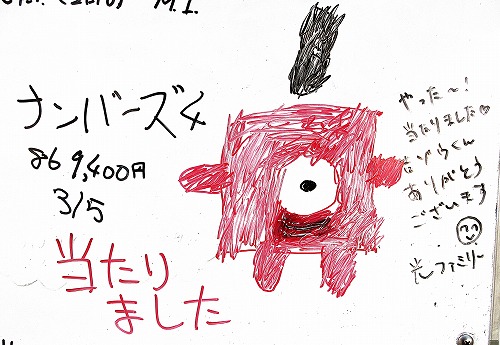 M.I.
ナンバーズ4
869,400円
3/5
当たり
ました
やった~!
当たりました♡
吉ゾウくん
ありがとう
ございます
光ファミリー